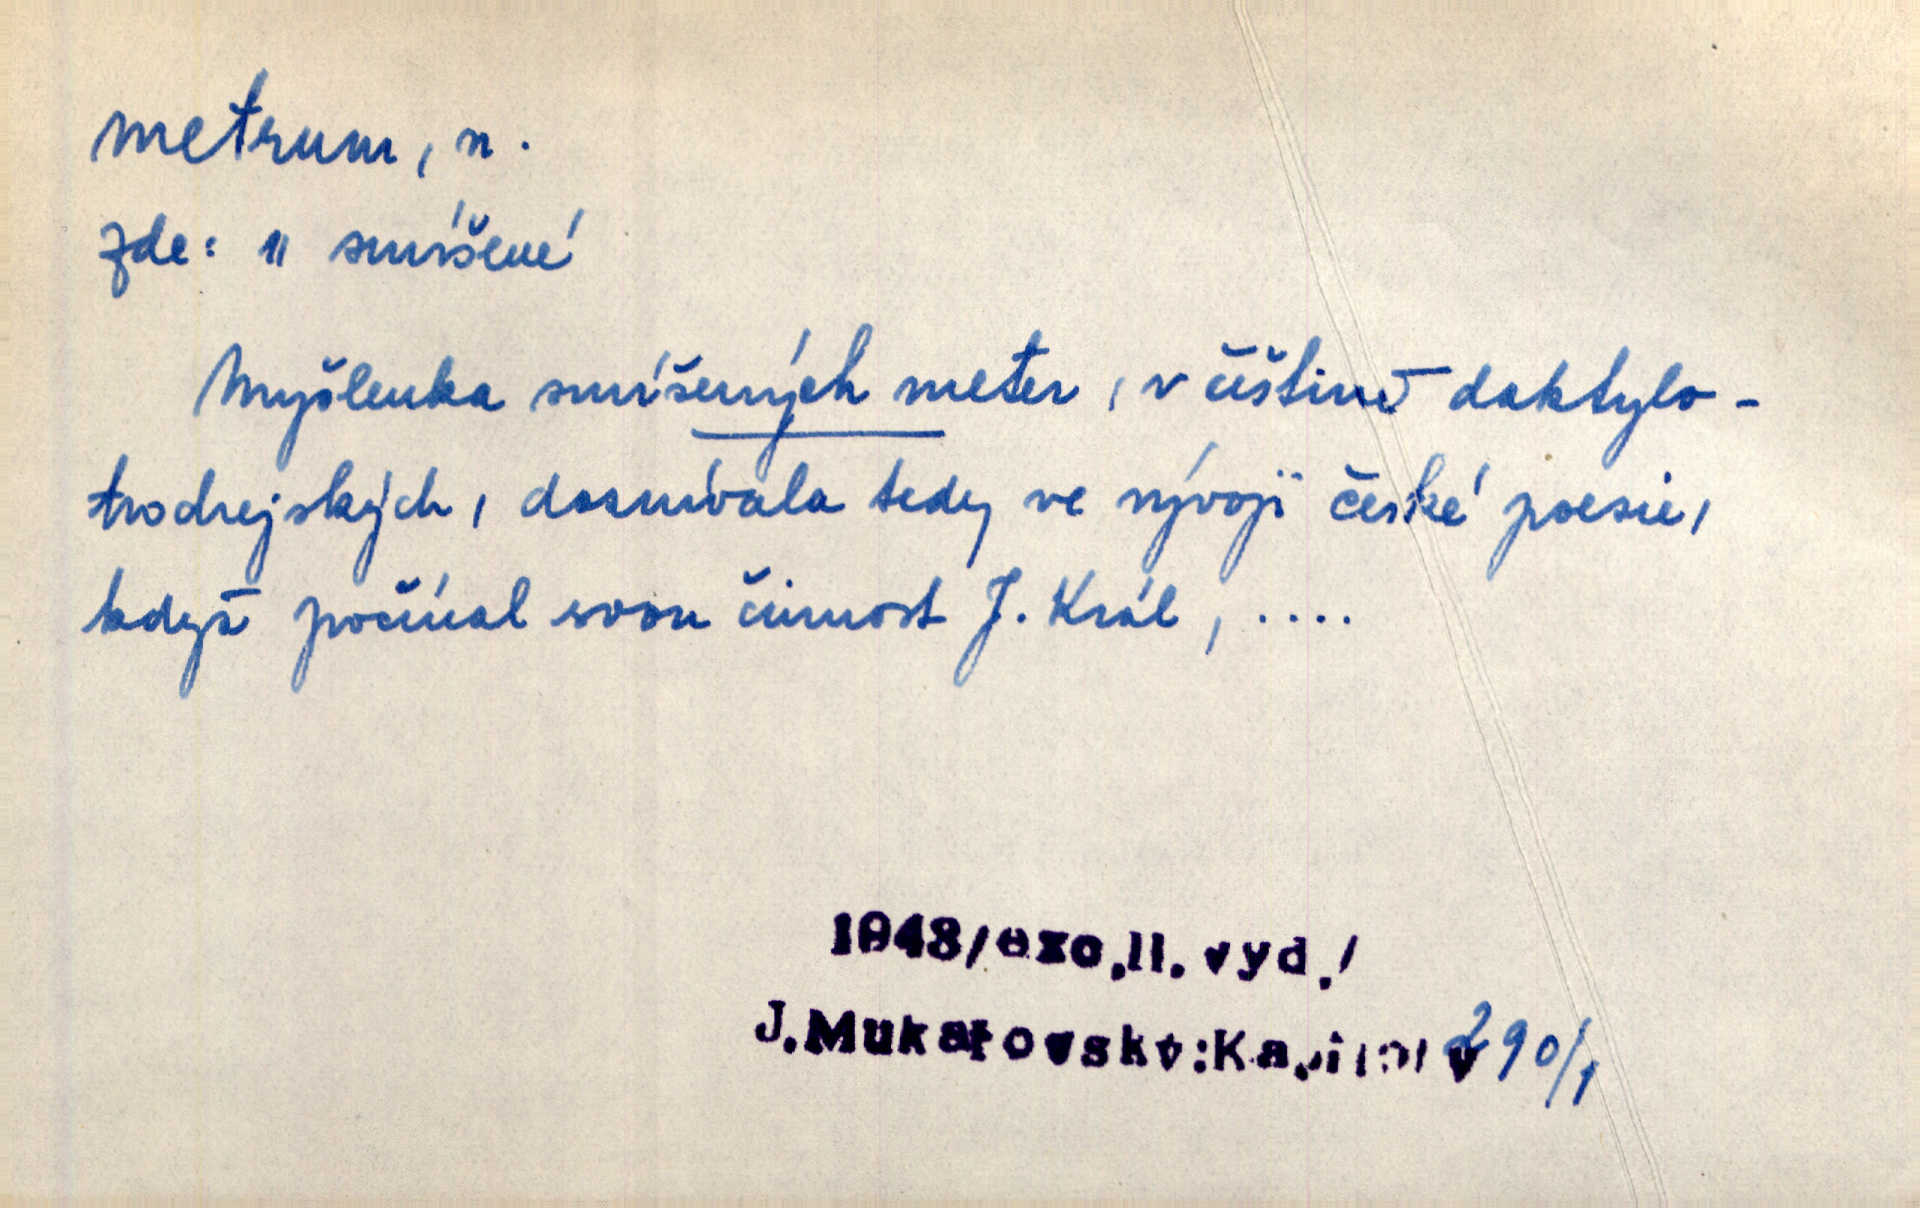 metrum, n.
zde: " smíšené
Myšlenka smíšených meter, v češtině daktylo-
trochejských, doznívala tedy ve vývoji české poesie,
když počínal svou činnost J. Král, ....
1948/exc.II. vyd./
J.Mukařovský:Kapitoly 290/1